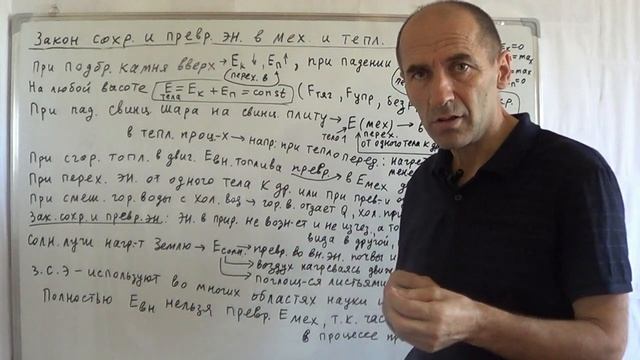 Закон сохр. и превр. эн. в мех. и тепл.
При подбр. камня вверх → Eк↓, Eп↑, при падении
перех. в
На любой высоте E = Eк + Eп = const (Fтяг, Fупр, без
тела
При пад. свинц. шара на свинц. плиту → E (мех) → в
тело перех.
от одного тела к др.
в тепл. проц-х → напр: при теплоперед.: нагрет
менее
При сгор. топл. в двиг. Eвн. топлива превр. → в Eмех
При перех. эн. от одного тела к др. или при прев-и
При смеш. гор. воды с хол. вод → гор. в. отдает Q, хол. при
Зак. сохр. и превр. эн.: эн. в прир. не возн-ет и не исчез., а то
вида в другой,
Солн. лучи нагр-т Землю → Eсолн. → превр. во вн. эн. почвы и
воздух нагреваясь движ
поглощ-ся листьями
З.С.Э – используют во многих областях науки и
Полностью Eвн нельзя превр. Eмех, т.к. час
в процессе